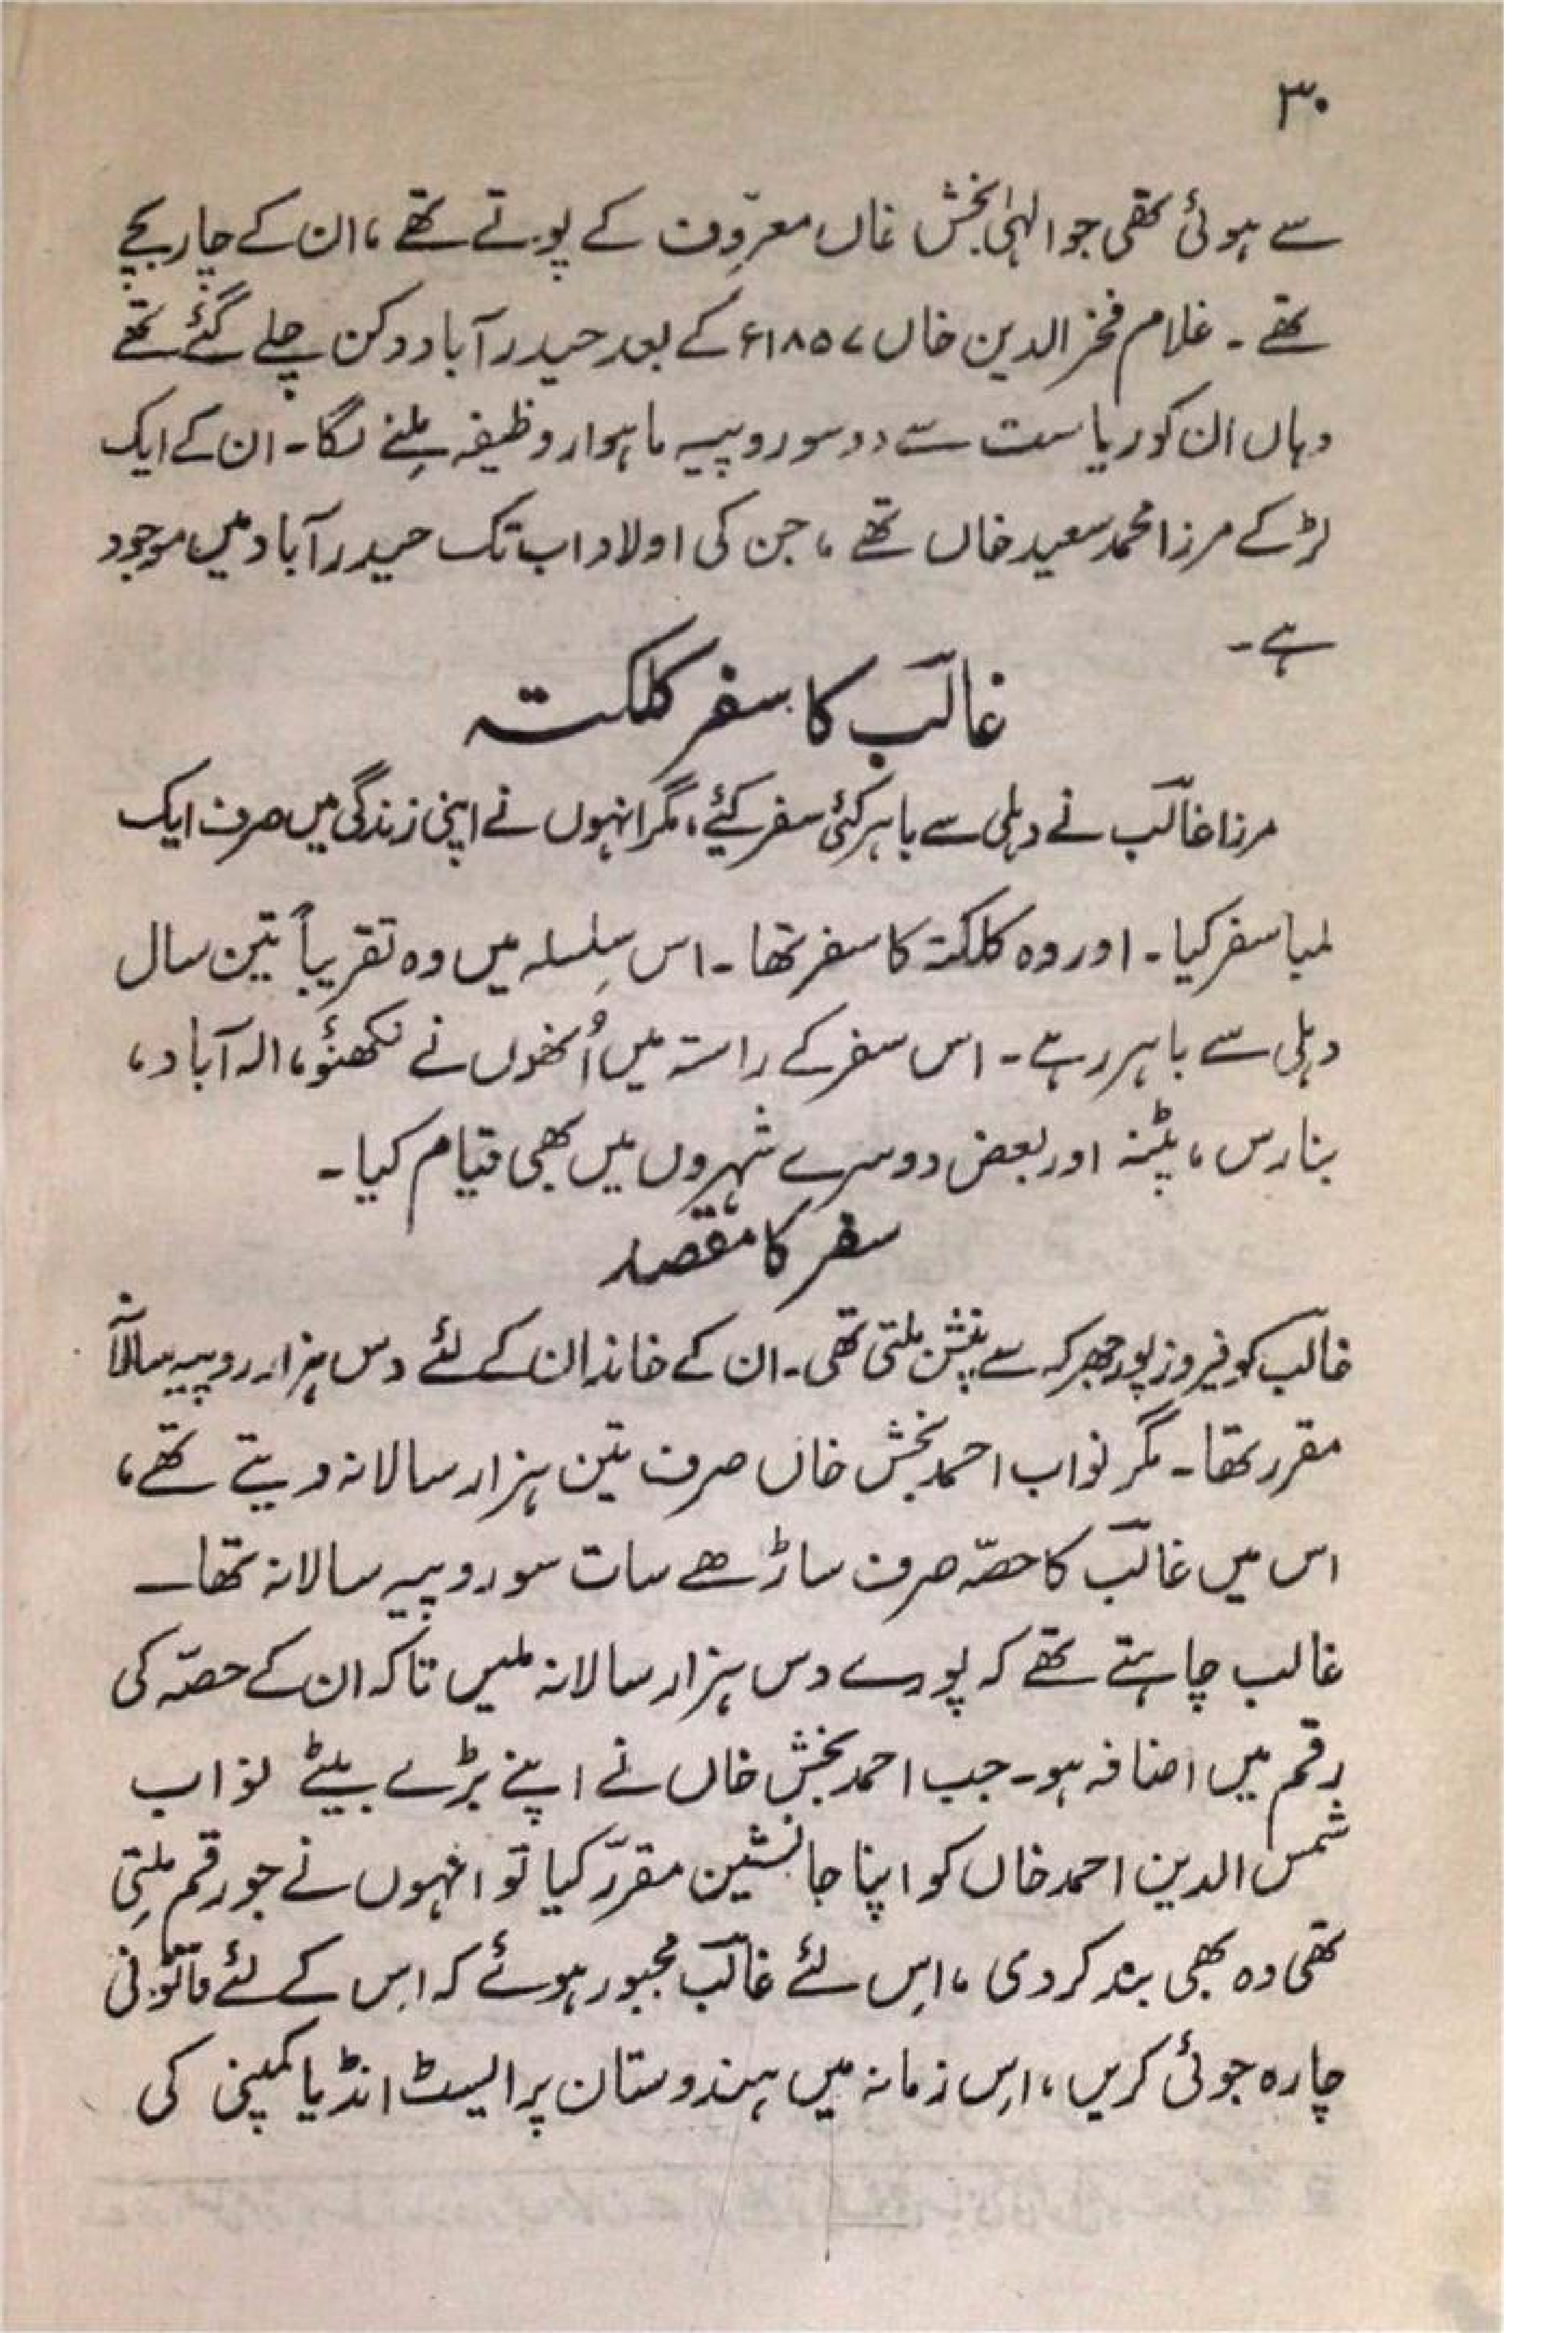 ۳۰
سے ہوئی تھی جو الہٰی بخش خاں معروف کے پوتے تھے ، ان کے چار بچے
تھے ۔ غلام فخر الدین خاں ۱۸۵۷ء کے بعد حیدر آباد دکن چلے گئے تھے
وہاں ان کو ریاست سے دو سو روپیہ ماہوار وظیفہ ملنے لگا ۔ ان کے ایک
لڑکے مرزا محمد سعید خاں تھے ، جن کی اولاد اب تک حیدر آباد میں موجود
ہے ۔
غالب کا سفر کلکتہ
مرزا غالب نے دہلی سے باہر کئی سفر کئے ، مگر انہوں نے اپنی زندگی میں صرف ایک
لمبا سفر کیا ۔ اور وہ کلکتہ کا سفر تھا ۔ اس سِلسلہ میں وہ تقریباً تین سال
دہلی سے باہر رہے ۔ اس سفر کے راستہ میں اُنھوں نے لکھنؤ ، الہ آباد ،
بنارس ، پٹنہ اور بعض دوسرے شہروں میں بھی قیام کیا ۔
سفر کا مقصد
غالب کو فیروز پور جھرکہ سے پنشن ملتی تھی ۔ ان کے خاندان کے لئے دس ہزار روپیہ سالانہ
مقرر تھا ۔ مگر نواب احمد بخش خاں صرف تین ہزار سالانہ دیتے تھے ،
اس میں غالب کا حصّہ صرف ساڑھے سات سو روپیہ سالانہ تھا ۔
غالب چاہتے تھے کہ پورے دس ہزار سالانہ ملیں تاکہ ان کے حصّہ کی
رقم میں اضافہ ہو ۔ جب احمد بخش خاں نے اپنے بڑے بیٹے نواب
شمس الدین احمد خاں کو اپنا جانشین مقررّ کیا تو انہوں نے جو رقم ملتِی
تھی وہ بھی بند کر دی ، اس لئے غالب مجبور ہوئے کہ اس کے لئے قانونی
چارہ جوئی کریں ، اس زمانہ میں ہندوستان پر ایسٹ انڈیا کمپنی کی